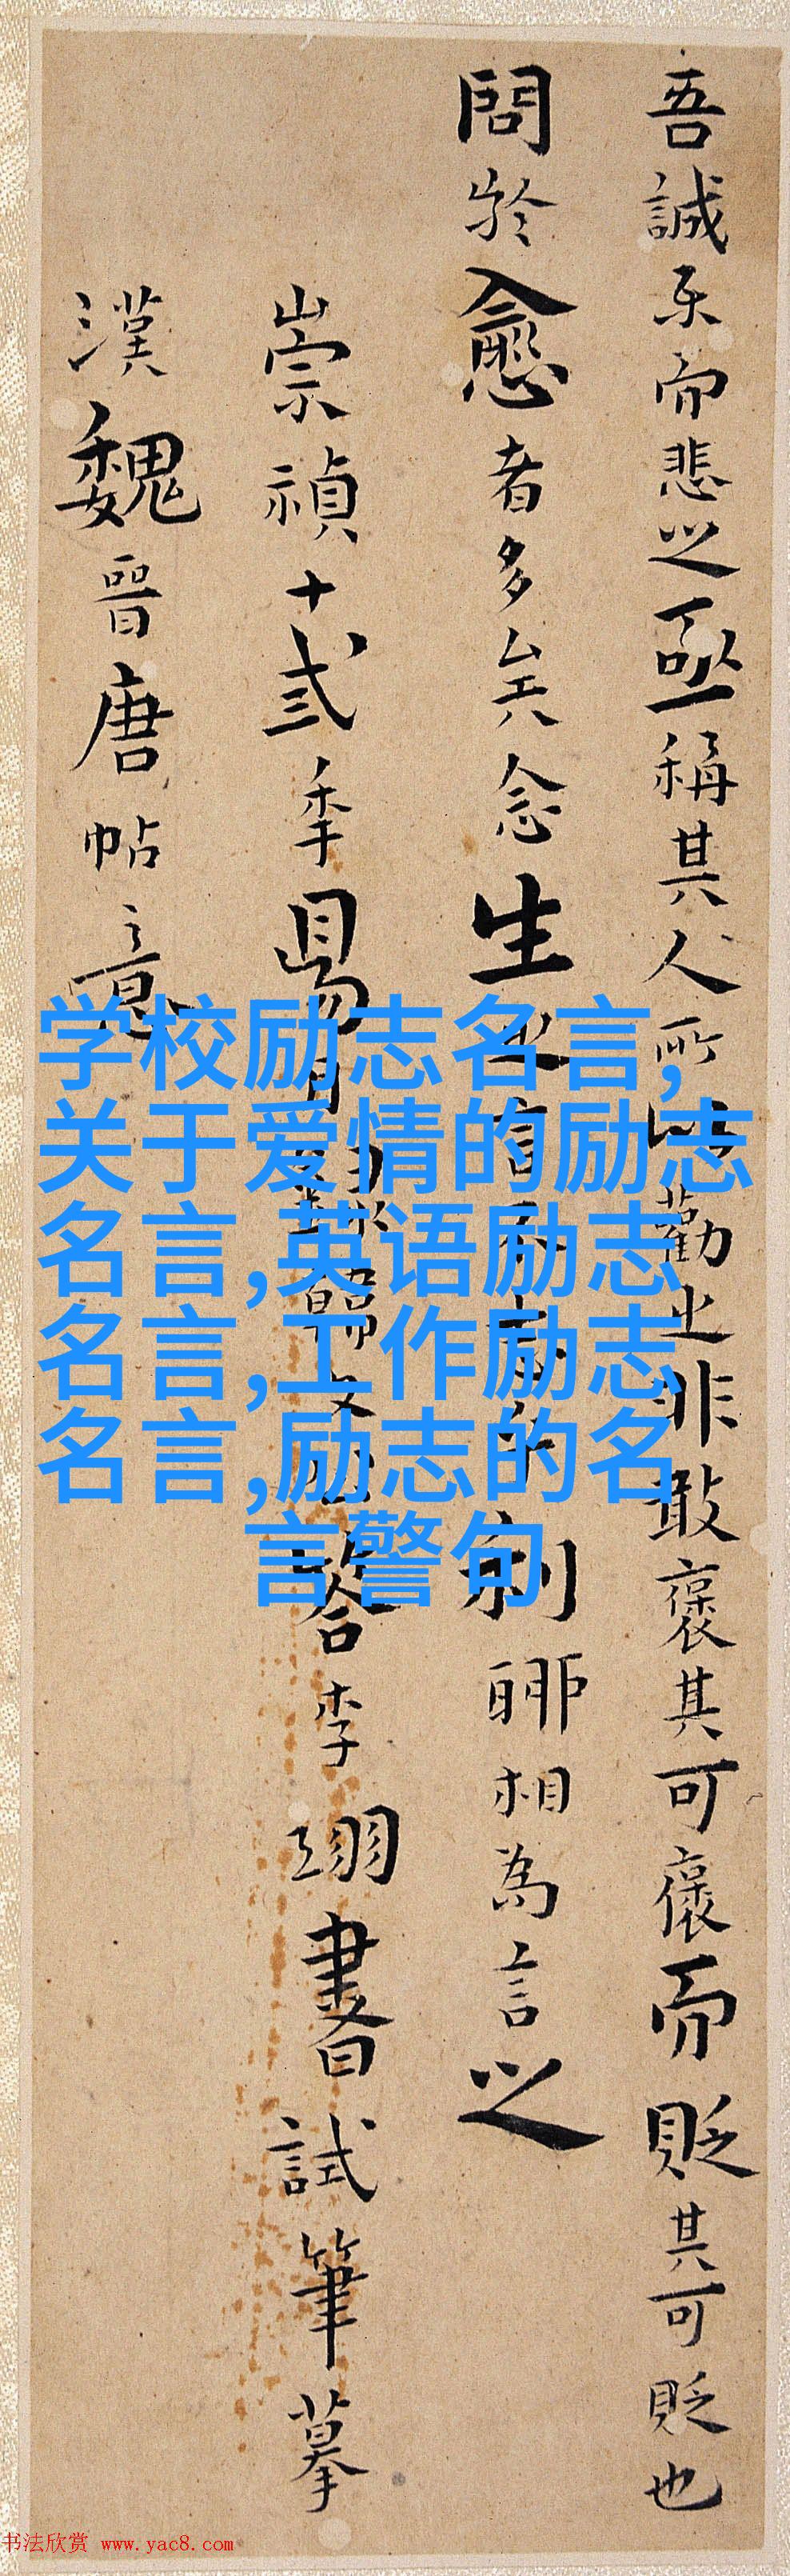 吾誠樂而悲之亟稱其人所以勸之非敢褒其可褒而貶其可貶也
問於愈者多矣念生之言不志乎利聊相為言之
崇禎十弍季昜月錄韓文公答李翊書試筆摹
漢魏晉唐帖意
学校励志名言,
关于爱情的励志
名言,英语励志
名言,工作励志
名言,励志的名
言警句
书法欣赏 www.yac8.com